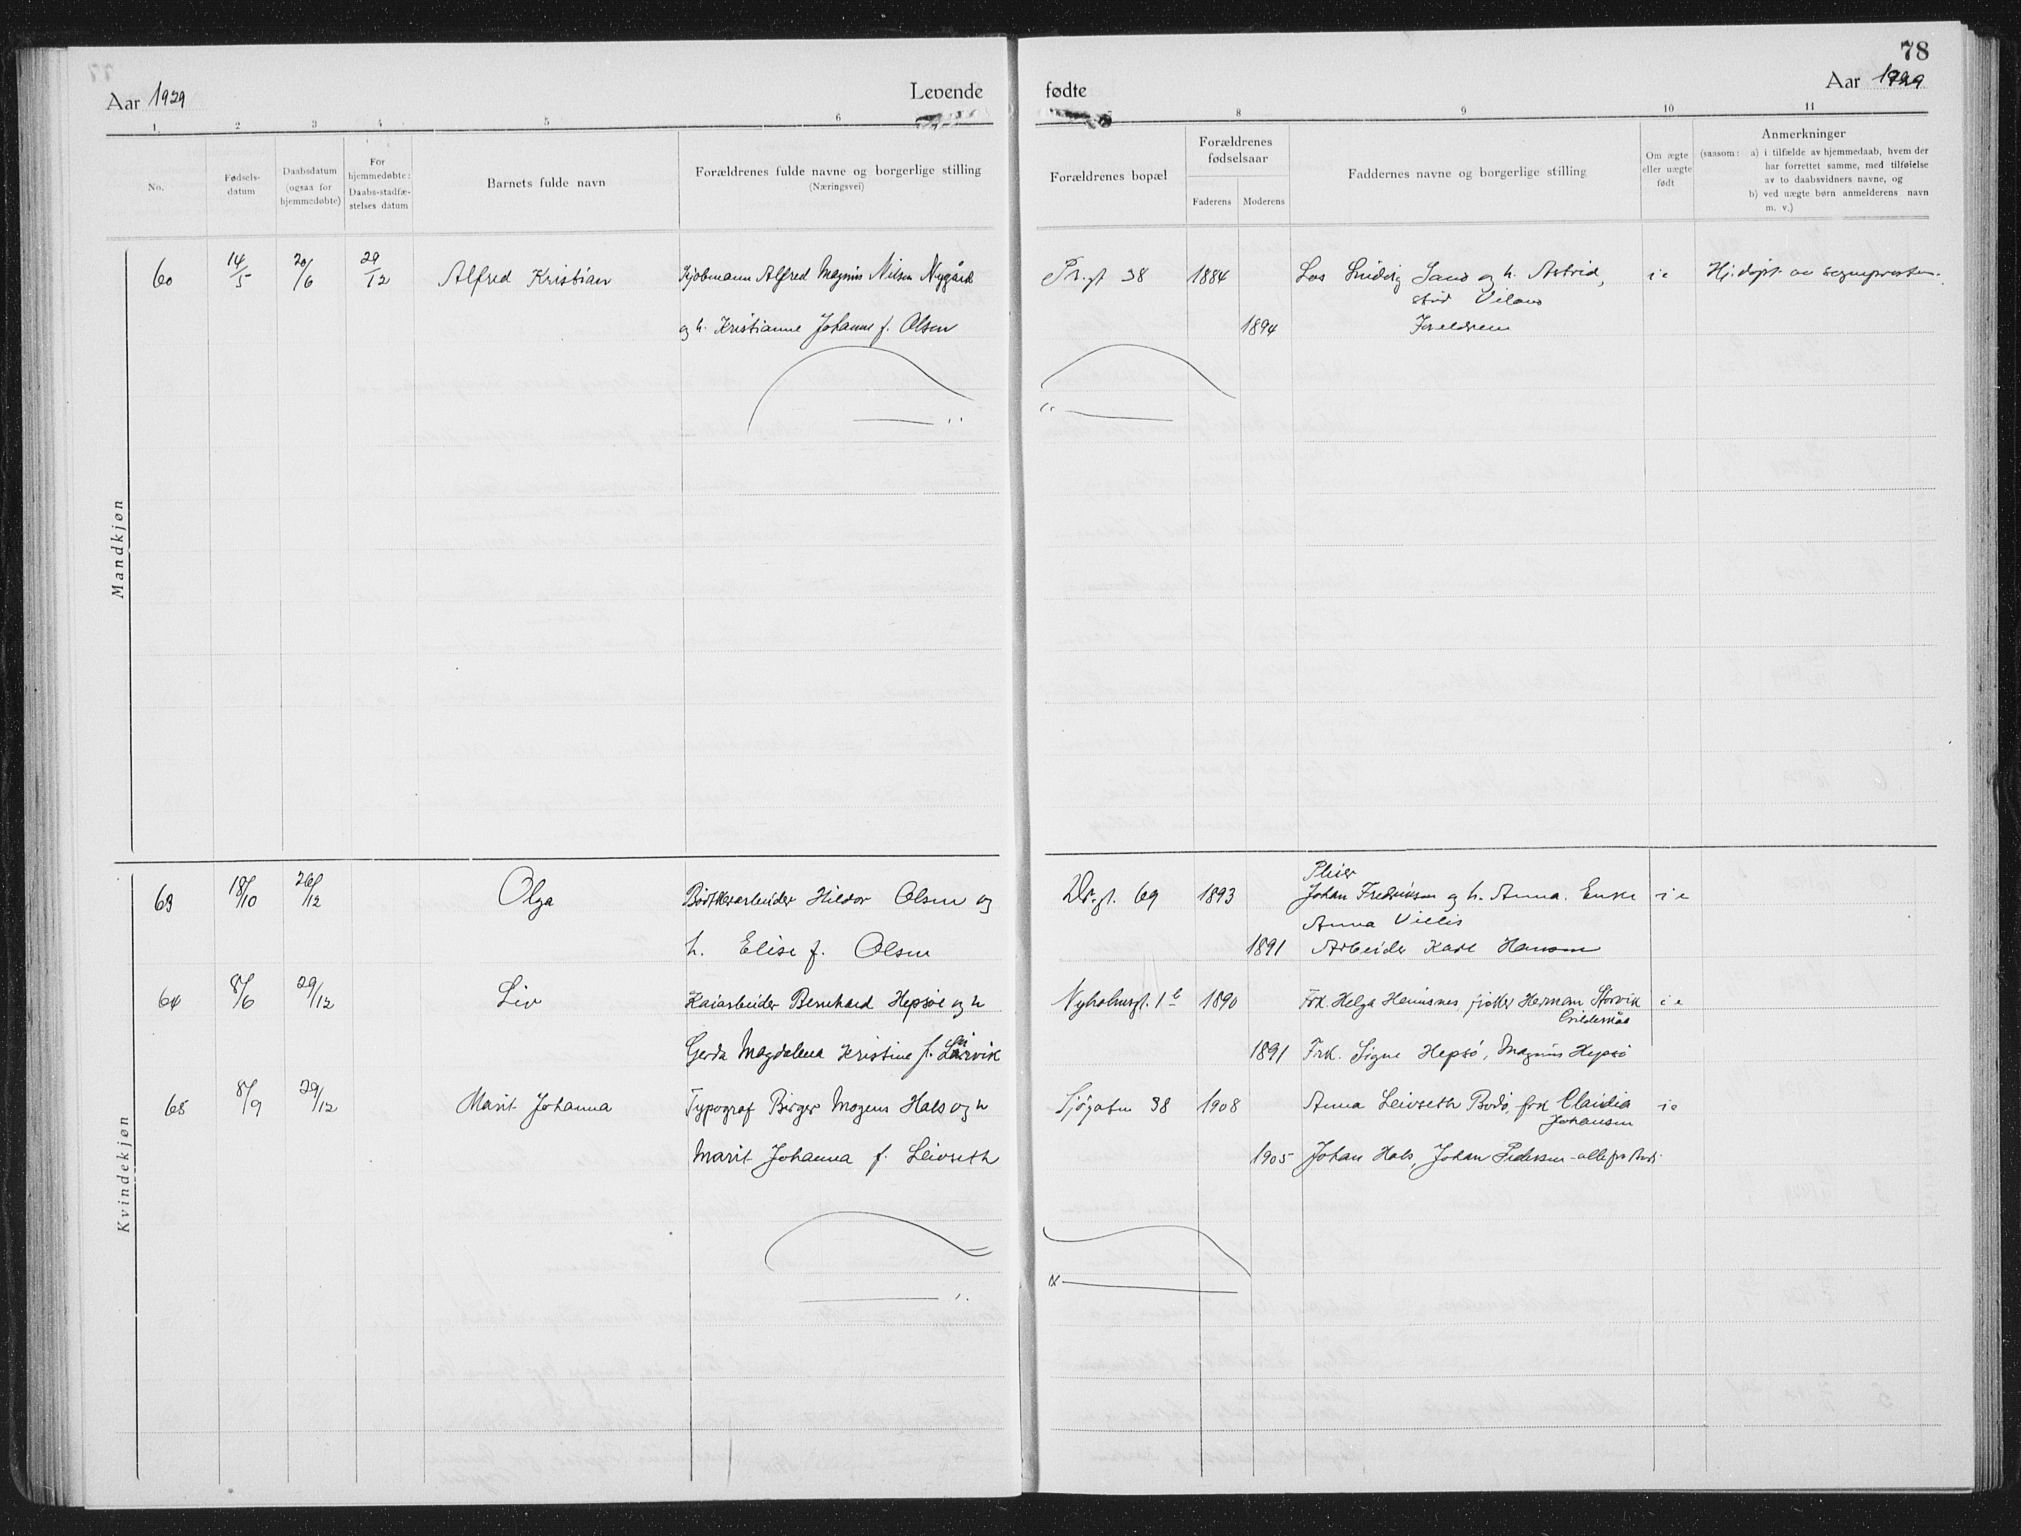 78
Aar 1929
Levende
fødte
Aar 1929
1 2 3 4 5 6
8 9 10 11
No.
Fødsels-
datum
Daabsdatum
(ogsaa for
hjemmedøbte)
For
hjemmedøbte:
Daabs-stadfæ-
stelses datum
Barnets fulde navn
Forældrenes fulde navne og borgerlige stilling
(Næringsvei)
Forældrenes bopæl
Forældrenes
fødselsaar
Faderens
Moderens
Faddernes navne og borgerlige stilling
Om ægte
eller uægte
født
Anmerkninger
(saasom: a) i tilfælde av hjemmedaab, hvem der
har forrettet samme, med tilføielse
av to daabsvidners navne, og
b) ved uægte børn anmelderens navn
m. v.)
Mandkjøn
60 14/5 20/6 29/12 Alfred Kristian Kjøbmann Alfred Magnus Nilsen Nygård Pr.gt 38 1884 Los Ludvig Sand og h. Astrid, i e Hj.døpt av sognepresten.
stud
og h. Kristianne Johanne f. Olsen 1894 Foreldrene
Kvindekjøn
Pleier
63 18/10 26/12 Olga Bødkerarbeider Hildor Olsen og Dr.gt. 69 1893 Johan Fredriksen og h. Anna. Enke i e
Anna
h. Elise f. Olsen 1891 Arbeider Karl Hansen
64 8/6 29/12 Liv Kaiarbeider Bernhard Hepsøe og h Nyholmsgt. 1 b 1890 Frk. Helga Hemisnes, fisker Herman Storvik i e
Gildeskål
Gerda Magdalena Kristine f. 1891 Frk. Signe Hepsø, Magnus Hepsø
65 8/9 29/12 Marit Johanna Typograf Birger Mogens Hals og h Sjøgaten 38 1908 Anna Leivseth Bodø, frk Claudia i e
Johansen
Marit Johanna f. Leivseth 1905 Johan Hals, Johan Pedersen - alle fra Bodø